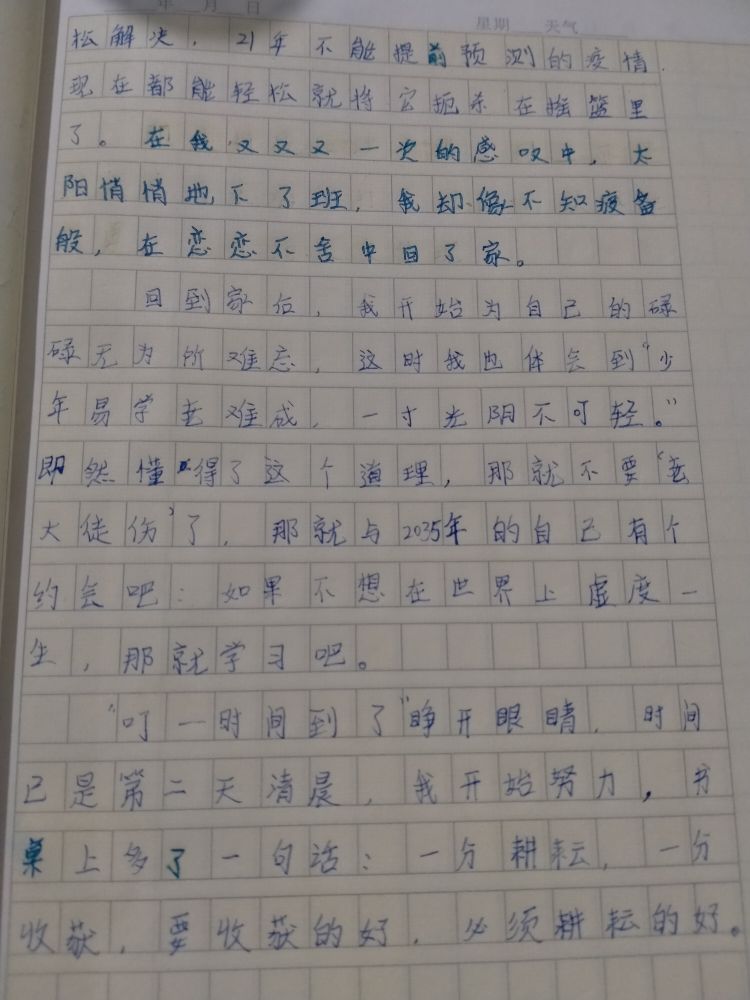 年 月 日
星期 天气
松解决，21年不能提前预测的疫情.
现在都能轻松就将它扼杀在摇篮里
了。在我又又又一次的感叹中，太
阳悄悄地下了班，我却像不知疲备
般，在恋恋不舍中回了家。
回到家后，我开始为自己的碌
碌无为所难忘，这时我也体会到“少
年易学老难成，一寸光阴不可轻。”
即然懂得了这个道理，那就不要“老
大徒伤”了，那就与2035年的自己有个
约会吧：如果不想在世界上虚度一
生，那就学习吧。
“叮一时间到了”睁开眼睛，时间
已是第二天清晨，我开始努力，书
桌上多了一句话：一分耕耘，一分
收获，要收获的好，必须耕耘的好。